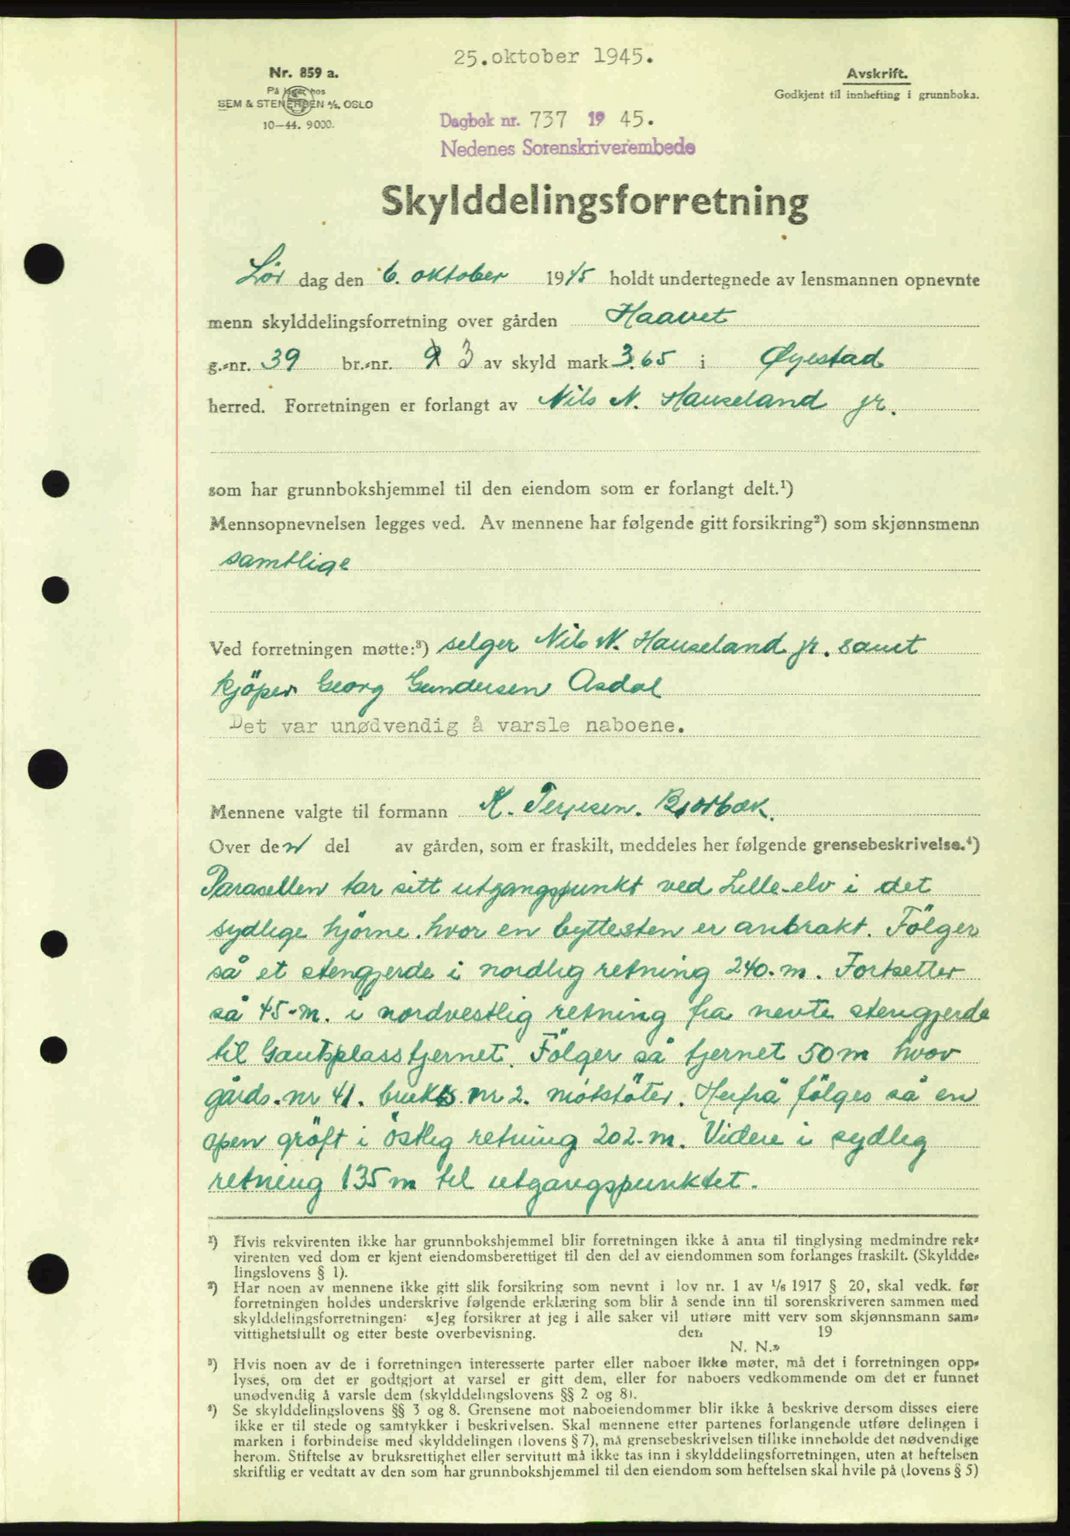 25. oktober 1945.
Nr. 859 a.
På lager hos
SEM & STENERSEN A/S. OSLO
10-44. 9000.
Avskrift.
Godkjent til innhefting i grunnboka.
Dagbok nr. 737 1945.
Nedenes Sorenskriverembede
Skylddelingsforretning
Lør dag den 6. oktober 1945 holdt undertegnede av lensmannen opnevnte
menn skylddelingsforretning over gården Haavet
g.-nr. 39 br.-nr. 3 av skyld mark 3.65 i Øyestad
herred. Forretningen er forlangt av Nils N. Hauseland jr.
som har grunnbokshjemmel til den eiendom som er forlangt delt.¹)
Mennsopnevnelsen legges ved. Av mennene har følgende gitt forsikring²) som skjønnsmenn
samtlige
Ved forretningen møtte:³) selger Nils N. Hauseland jr. samt
kjöper Georg Gundersen Asdal
Det var unødvendig å varsle naboene.
Mennene valgte til formann K. Terjesen. Bjorbæk.
Over den del av gården, som er fraskilt, meddeles her følgende grensebeskrivelse.⁴)
Parasellen tar sitt utgangspunkt ved Lille-elv i det
sydlige hjörne. hvor en byttesten er anbrakt. Fölger
så et stengjerde i nordlig retning 240.m. Fortsetter
så 45-m. i nordvestlig retning fra nevte stengjerde
til Gautsplasstjernet. Fölger så tjernet 50m hvor
gårds.nr 41. bruks nr 2. motstöter. Herfra fölges så en
open gröft i östlig retning 202-m. Videre i sydlig
retning 135m til utgangspunktet.
¹) Hvis rekvirenten ikke har grunnbokshjemmel blir forretningen ikke å anta til tinglysing medmindre rek-
virenten ved dom er kjent eiendomsberettiget til den del av eiendommen som forlanges fraskilt. (Skyldde-
lingslovens § 1).
²) Har noen av mennene ikke gitt slik forsikring som nevnt i lov nr. 1 av 1/6 1917 § 20, skal vedk. før
forretningen holdes underskrive følgende erklæring som blir å sende inn til sorenskriveren sammen med
skylddelingsforretningen: «Jeg forsikrer at jeg i alle saker vil utføre mitt verv som skjønnsmann sam-
vittighetsfullt og etter beste overbevisning. den 19
N. N.»
³) Hvis noen av de i forretningen interesserte parter eller naboer ikke møter, må det i forretningen opp-
lyses, om det er godtgjort at varsel er gitt dem, eller for naboers vedkommende om det er funnet
unødvendig å varsle dem (skylddelingslovens §§ 2 og 8).
⁴) Se skylddelingslovens §§ 3 og 8. Grensene mot naboeiendommer blir ikke å beskrive dersom disses eiere
ikke er til stede og samtykker i beskrivelsen. Skal mennene etter partenes forlangende utføre delingen i
marken i forbindelse med skylddelingen (lovens § 7), må grensebeskrivelsen tillike inneholde det nødvendige
herom. Stiftelse av bruksrettighet eller servitutt må ikke tas inn i skylddelingsforretningen, uten at heftelsen
skriftlig er vedtatt av den som har grunnbokshjemmel til den eiendom som heftelsen skal hvile på (lovens § 5)